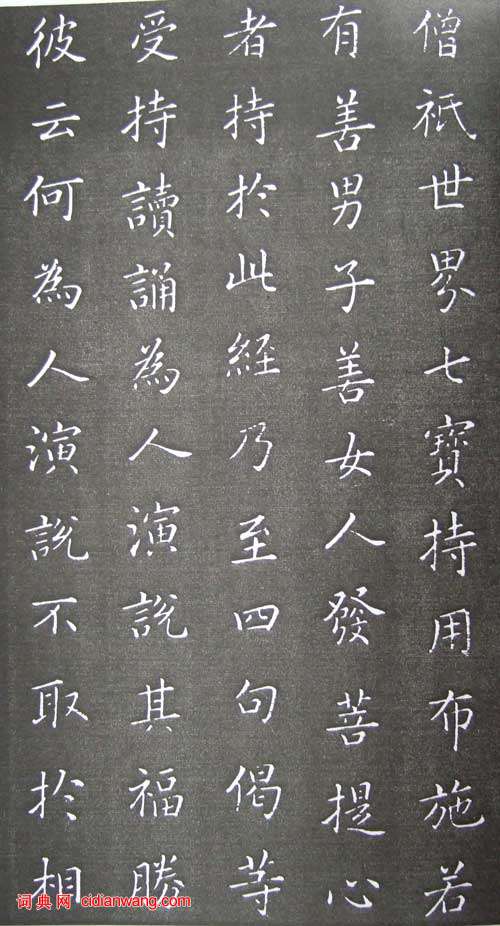 僧祇世界七寶持用布施若
有善男子善女人發菩提心
者持於此經乃至四句偈等
受持讀誦為人演說其福勝
彼云何為人演說不取於相
词典网 cidianwang.com